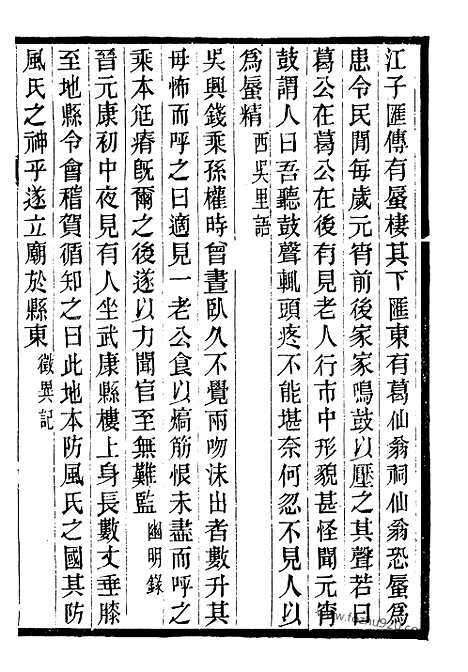 江子匯傳有蜃棲其下匯東有葛仙翁祠仙翁恐蜃爲
患令民閒每歲元宵前後家家鳴鼓以壓之其聲若曰
葛公在葛公在後有見老人行市中形貌甚怪聞元宵
鼓謂人曰吾聽鼓聲輒頭疼不能堪奈何忽不見人以
爲蜃精西吳里語
吳興錢乘孫權時曾晝臥久不覺兩吻沫出者數升其
母怖而呼之曰適見一老公食以熇筋恨未盡而呼之
乘本尫瘠旣爾之後遂以力聞官至無難監幽明錄
晉元康初中夜見有人坐武康縣樓上身長數丈垂膝
至地縣令會稽賀循知之曰此地本防風氏之國其防
風氏之神乎遂立廟於縣東徵異記